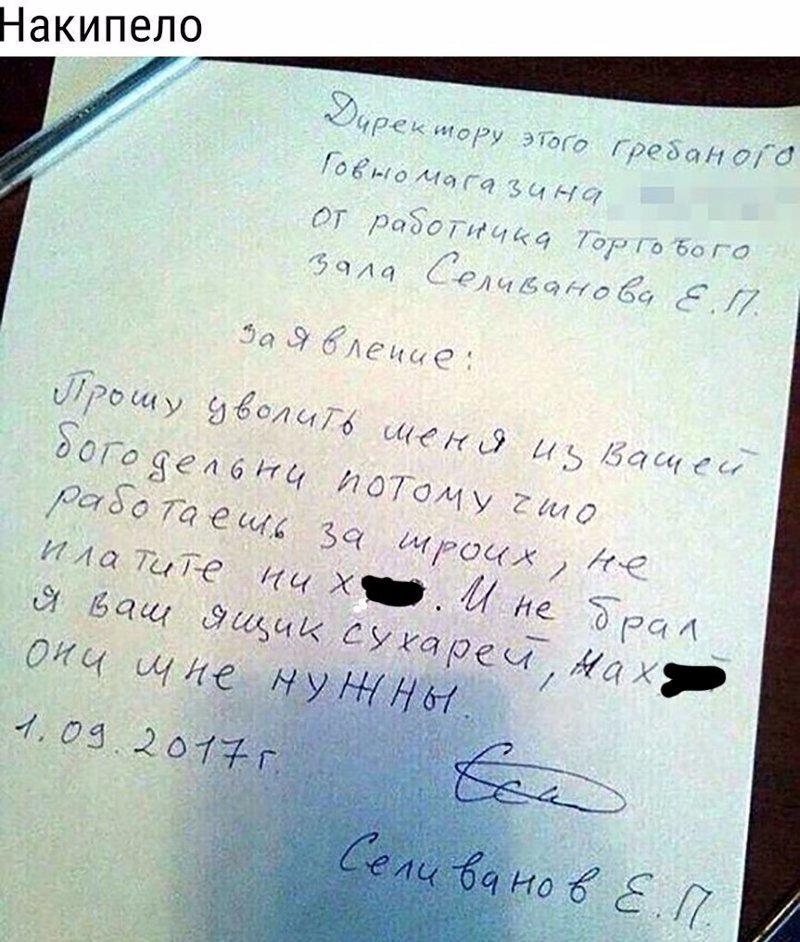 Накипело
Директору этого гребаного
Говномагазина
от работника Торгового
зала Селиванова Е.П.
заявление:
Прошу уволить меня из вашей
богодельни потому что
работаешь за троих, не
платите ни х. И не брал
я ваш ящик сухарей, нах
они мне нужны.
1.09.2017г.
Селиванов Е.П.